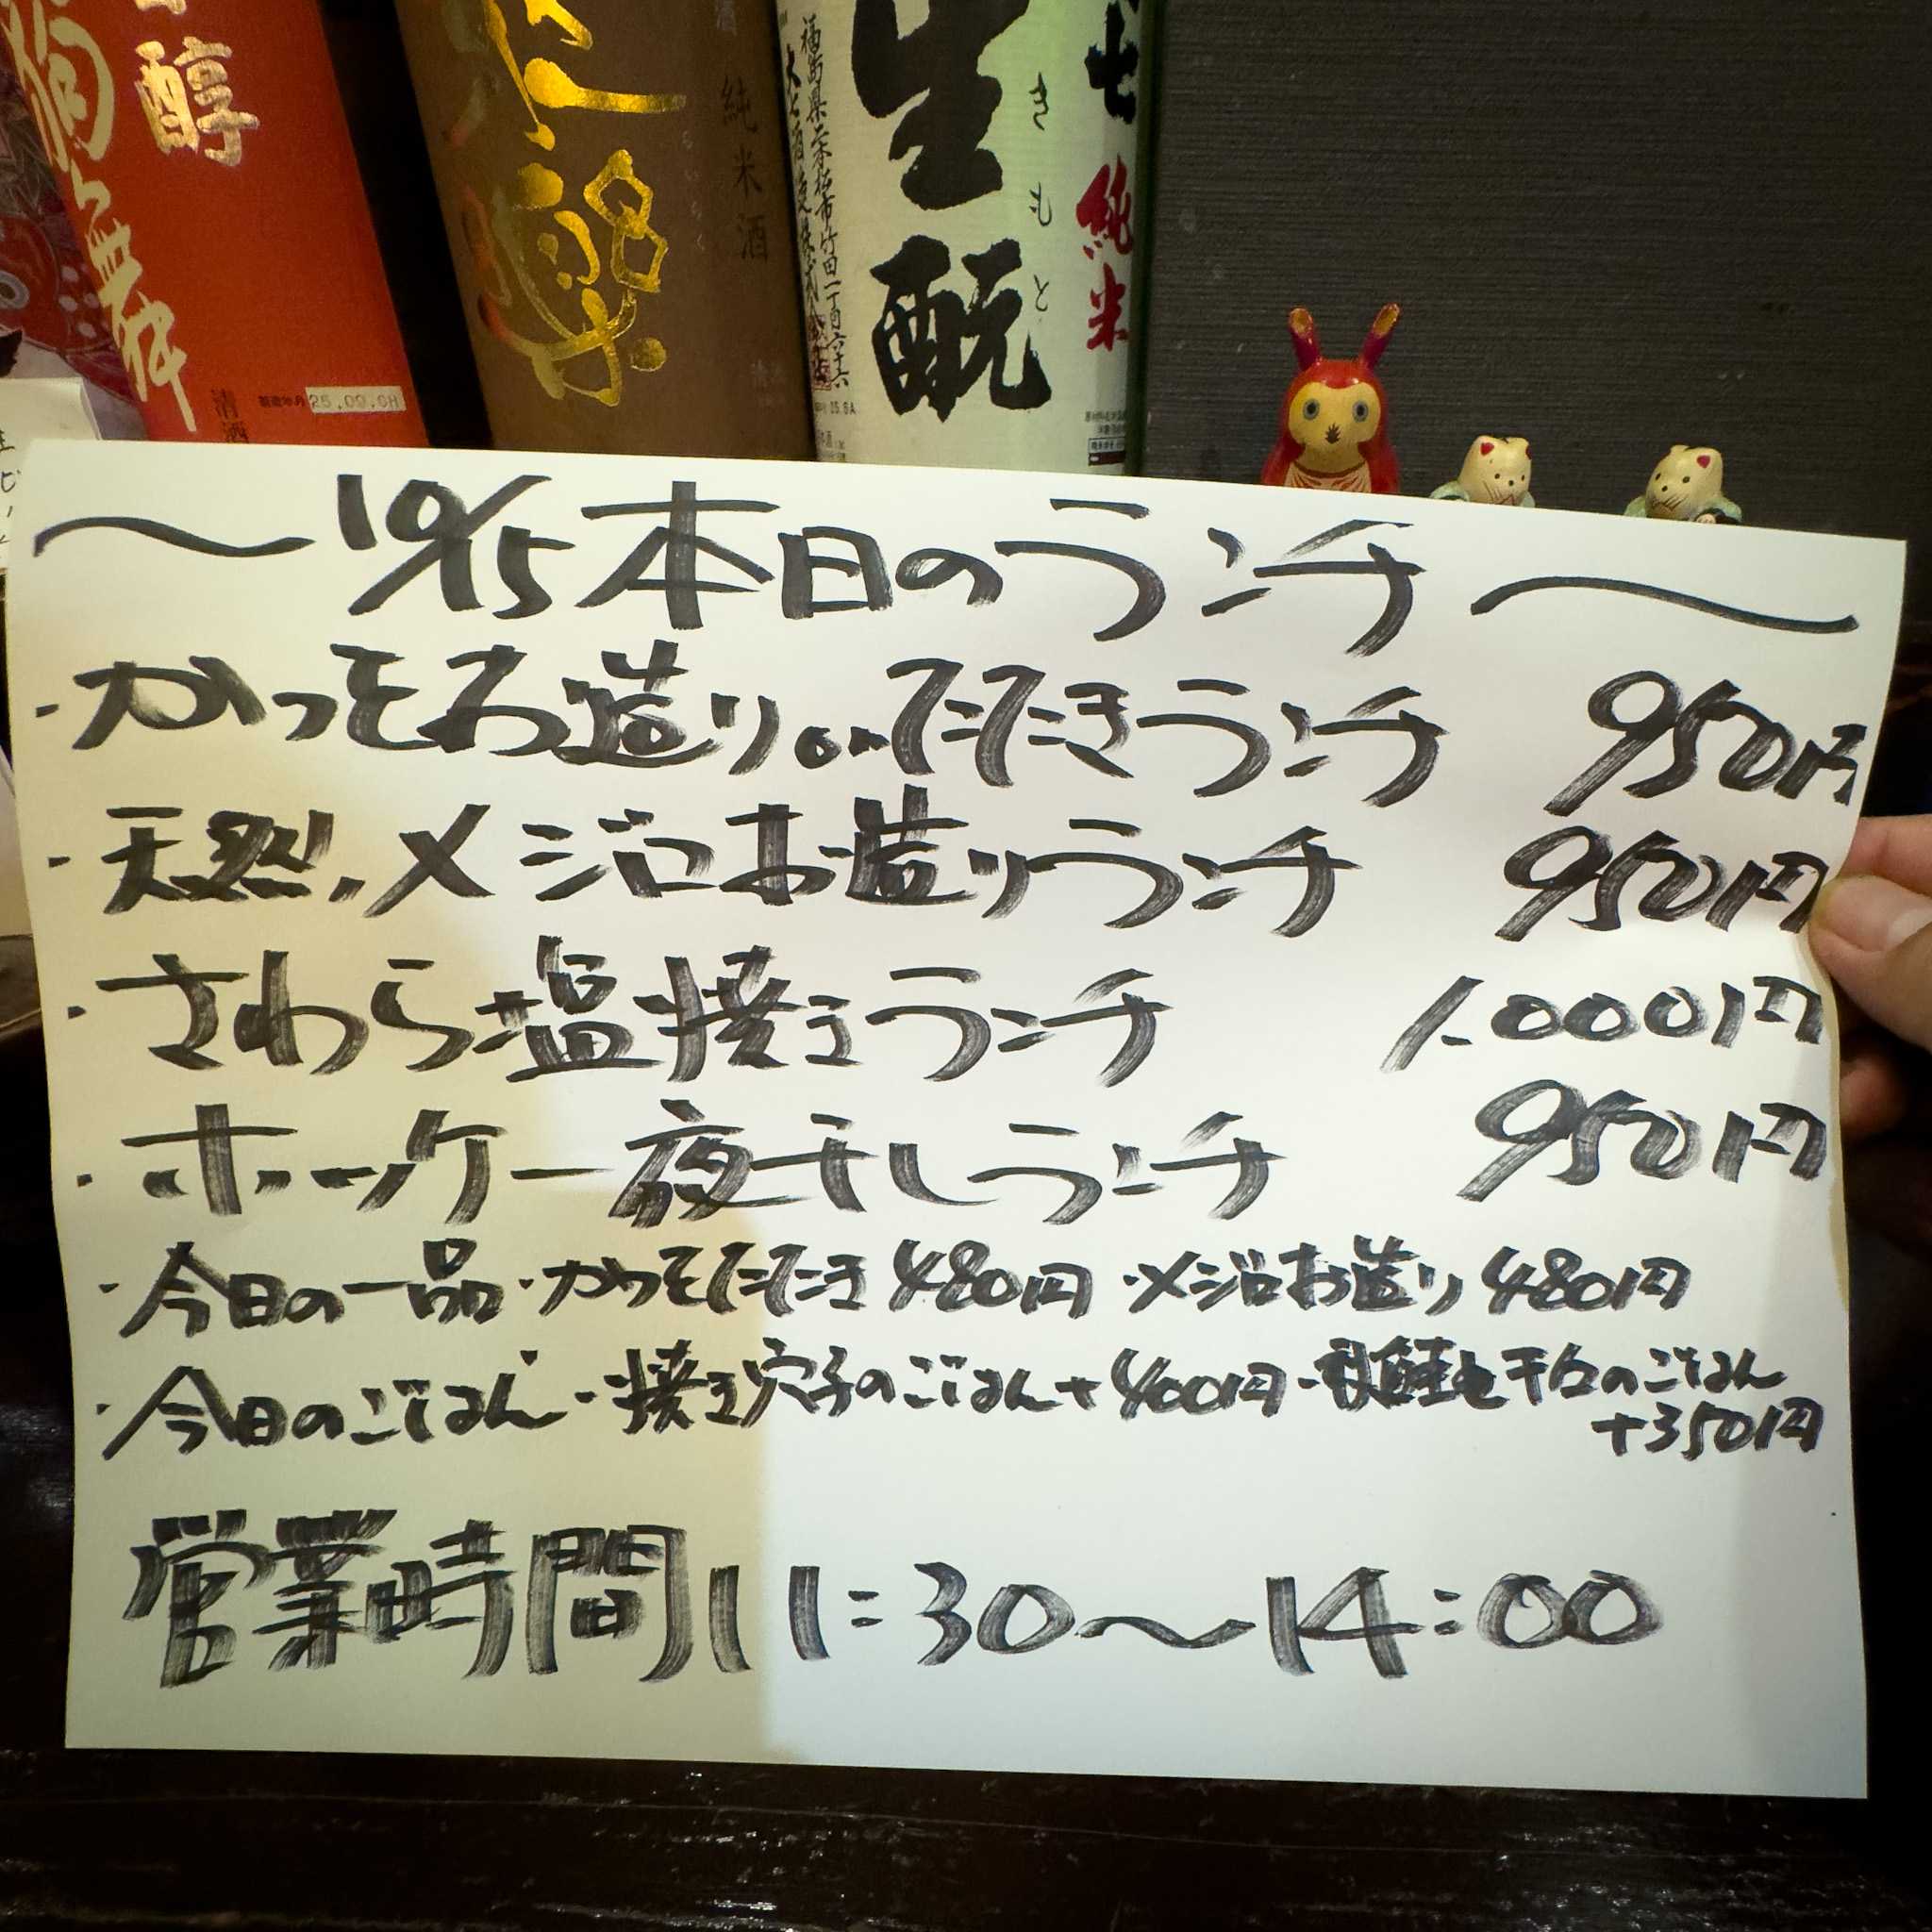 醇
純米酒
生酛
きもと
純米
清酒
製造年月 25.09.
～10/15本日のランチ～
・かつをお造りorたたきランチ 950円
・天然メジロお造りランチ 950円
・さわら塩焼きランチ 1.000円
・ホッケ一夜干しランチ 950円
・今日の一品・かつをたたき480円・メジロお造り480円
・今日のごはん・焼き穴子のごはん+400円・鮭と千台のごはん
+350円
営業時間11:30～14:00